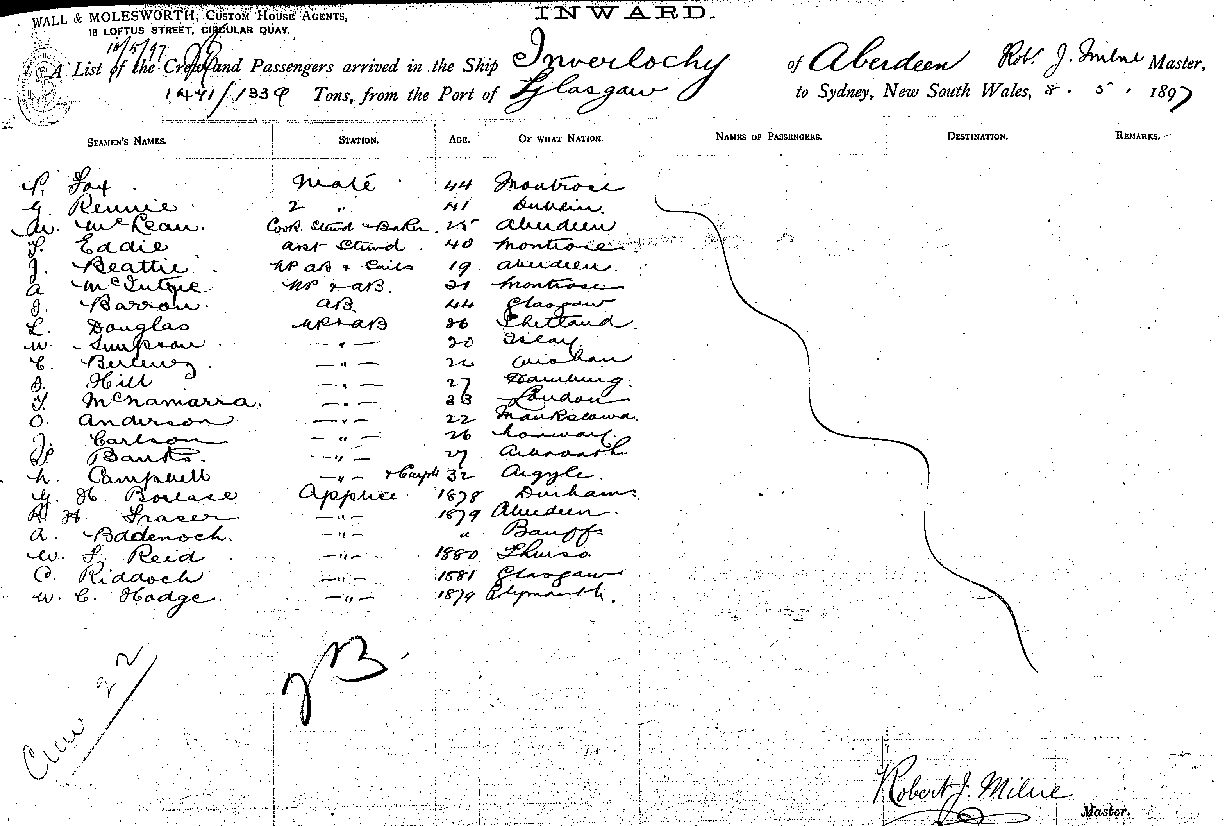 WALL & MOLESWORTH, CUSTOM HOUSE AGENTS,
18 LOFTUS STREET, CIRCULAR QUAY.
INWARD.
10/5/97
A List of the Crew and Passengers arrived in the Ship Inverlochy of Aberdeen Rob. J. Milne Master,
1471/1339 Tons, from the Port of Glasgow to Sydney, New South Wales, 8. 5. 1897
SEAMEN'S NAMES. STATION. AGE. OF WHAT NATION. NAMES OF PASSENGERS. DESTINATION. REMARKS.
Fox Mate 44 Montrose
Rennie 2 " 41 Dublin
McLean Cook Stwd & Baker 25 Aberdeen
Eddie asst Stwd 40 Montrose
J. Beattie AB & Sails 19 Aberdeen
a McIntyre & AB. 21 Montrose
J. Barron AB. 44 Glasgow
L. Douglas & AB 26 Shetland
W. Simpson — " — 20 Islay
— " —
Hill — " — 27 Hamburg.
McNamarra. — " — London
O. Anderson — " — 22
J. Carlson — " — 26 Norway
Banks — " — 27 Arbroath
Campbell — " — 32 Argyle.
G. H. Borease Apptice 1878 Durham
H. Fraser — " — 1879 Aberdeen
a. Badenoch — " — " Banff
W. Reid — " — 1880 Thurso
C. Riddoch — " — 1881 Glasgow
W. C. Hodge — " — 1879 Plymouth.
Crew 22
JB.
Robert J. Milne
Master.